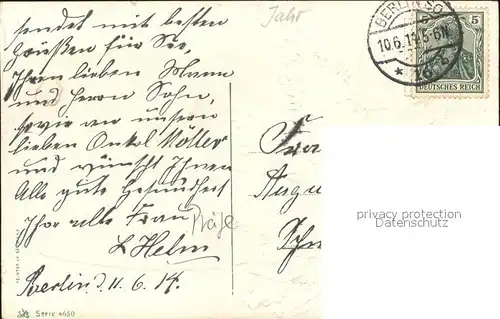 sendet mit besten
Grüßen für Sie,
Ihren lieben Mann
und Herrn Sohn,
sowie an unsern
lieben Onkel Möller
und wünscht Ihnen
Alle gute Gesundheit
Ihre alte Frau
L Helm
Berlin d. 11. 6. 14.
Jahr
Präge
Serie 4650
BERLIN SO
10.6.1
5-6N
5
DEUTSCHES REICH
Frau
Augu
privacy protection
Datenschutz